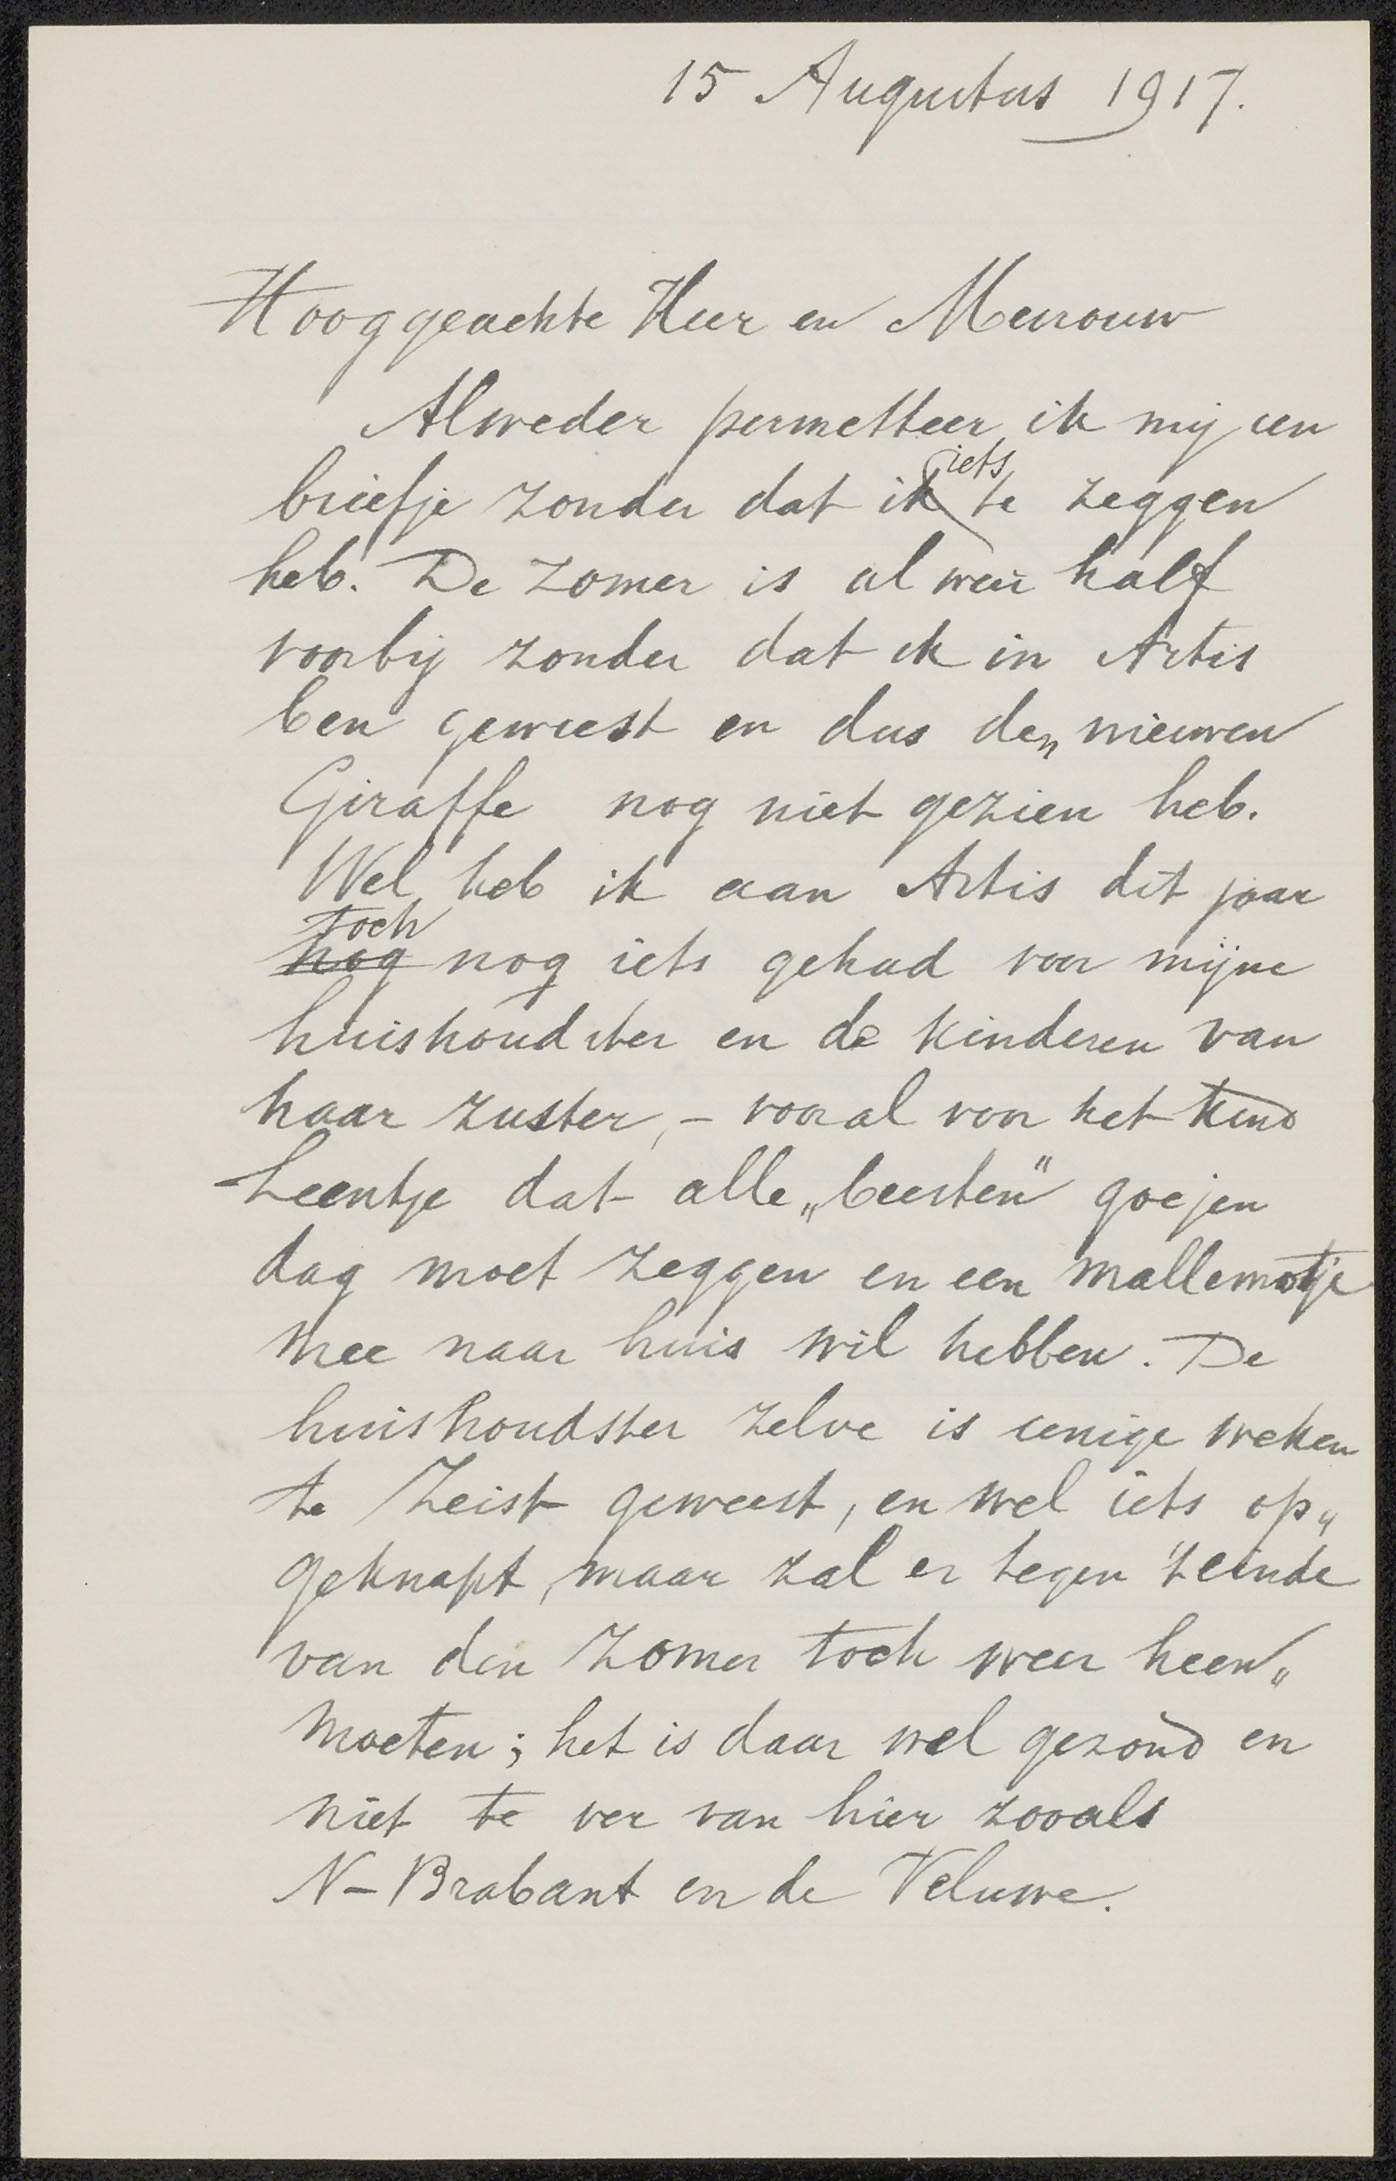 15 Augustus 1917.
Hooggeachte Heer en Mevrouw
Alweder permetteer ik mij een
briefje zonder dat ik iets te zeggen
heb. De zomer is al weer half
voorbij zonder dat ik in Artis
ben geweest en dus den nieuwen
Giraffe nog niet gezien heb.
Wel heb ik aan Artis dit jaar
toch
nog nog iets gehad voor mijne
huishoudster en de kinderen van
haar zuster, - vooral voor het kind
Leentje dat alle „beesten" goejen
dag moet zeggen en een mallemotje
mee naar huis wil hebben. De
huishoudster zelve is eenige weken
te Zeist geweest, en wel iets op„
geknapt, maar zal er tegen 't einde
van den zomer toch weer heen„
moeten; het is daar wel gezond en
niet te ver van hier zooals
N-Brabant en de Veluwe.